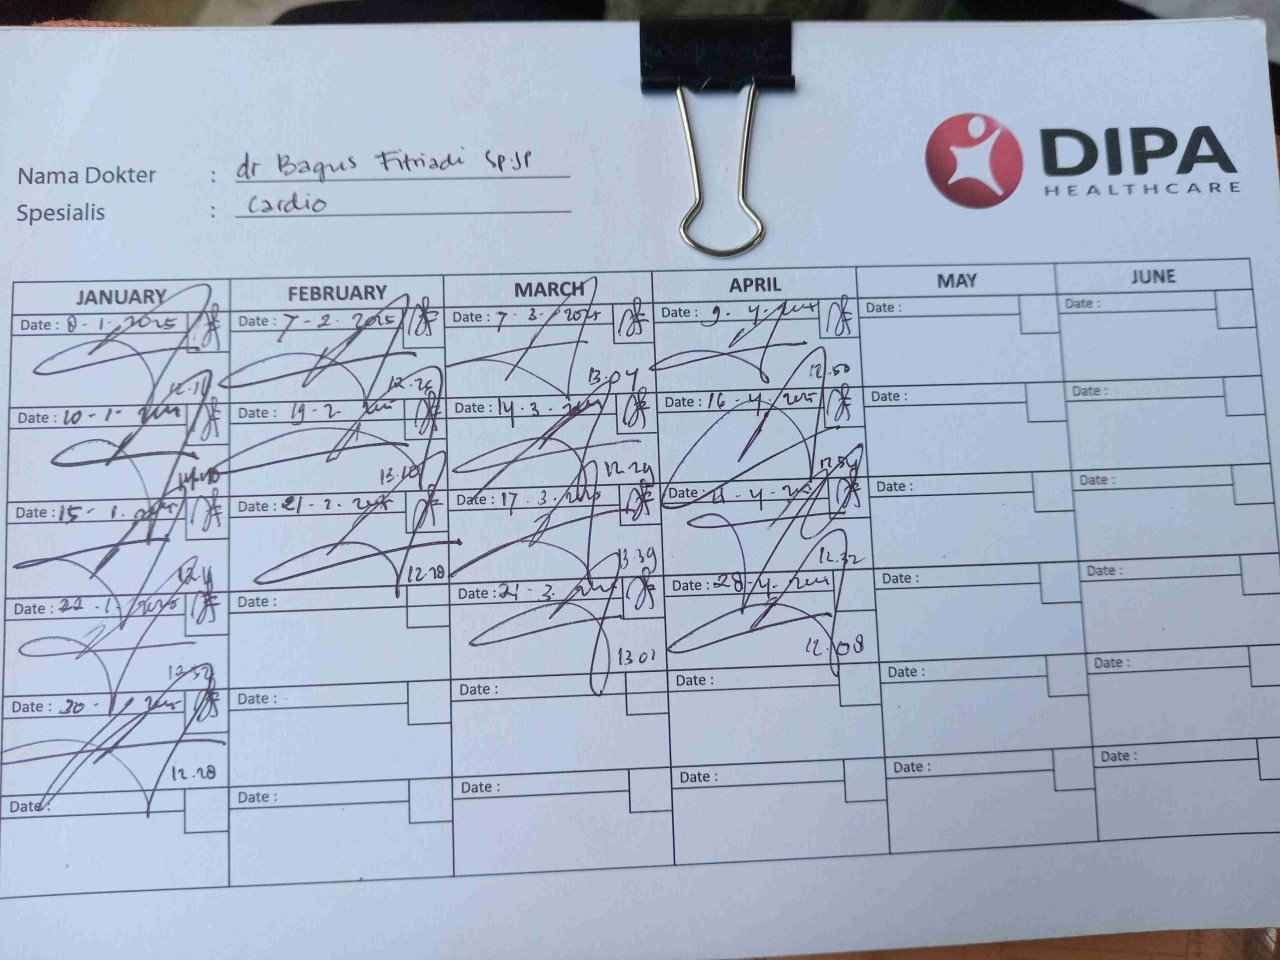 DIPA
HEALTHCARE
Nama Dokter : dr Bagus Fitriadi Sp.JP
Spesialis : Cardio
JANUARY FEBRUARY MARCH APRIL MAY JUNE
Date : 8-1-2025 Date : 7-2-2025 Date : 7-3-2025 Date : 9-4-2025 Date : Date :
12.11 12.26 13.04 12.50
Date : 10-1-2025 Date : 19-2-2025 Date : 14-3-2025 Date : 16-4-2025 Date : Date :
13.10 12.29 12.54
Date : 15-1-2025 Date : 21-2-2025 Date : 17-3-2025 Date : -4-2025 Date : Date :
12.28 13.39 12.32
Date : 22-1-2025 Date : Date : 21-3-2025 Date : 28-4-2025 Date : Date :
12.52 13.01 12.08
Date : 30- 2025 Date : Date : Date : Date : Date :
12.28
Date : Date : Date : Date : Date : Date :